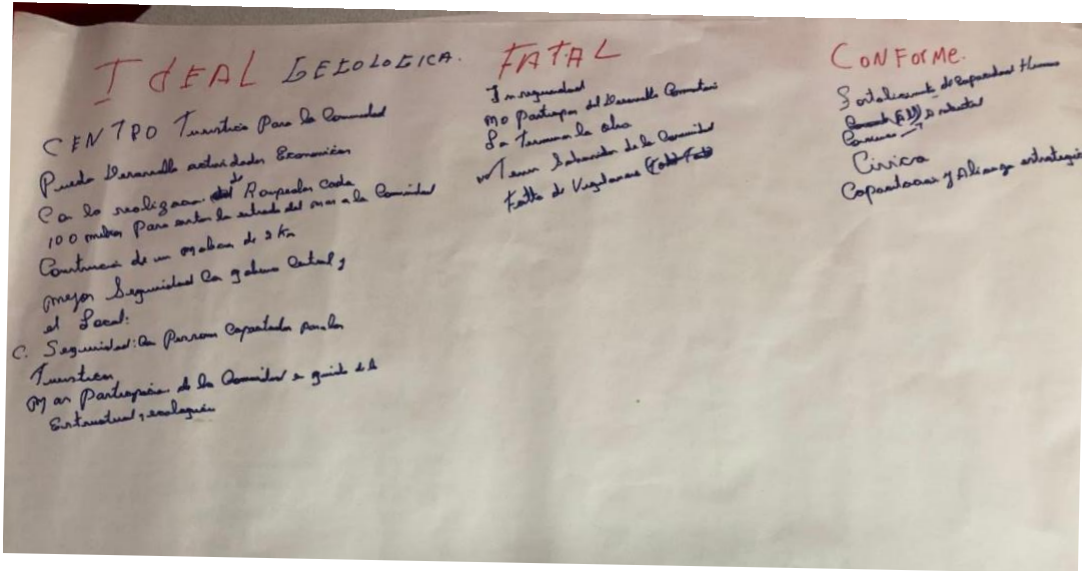 IdEAL GEEOLOGICA.
CENTRO Turistico Para la Comunidad
Pueda Desarrolla actividades Economicas
Con la realizacion de Rompeolas Cada
100 metros Para evitar la entrada del mar a la Comunidad
Construccion de un malecon de 2 Km
mejor Seguridad Con gobierno Central y
el Local:
C. Seguridad: Con Personas Capacitadas para los
Turisticos
Mas Participacion de la Comunidad
Estructural, ecologica
FATAL
Inseguridad
no Participar del Desarrollo Comunitario
La Termina la obra
Tener de la Comunidad
Falta de Vigilancia
CONFORME.
Fortalecimiento de Capacidad Humana
Civica
Capacitacion y Alianza estrategica